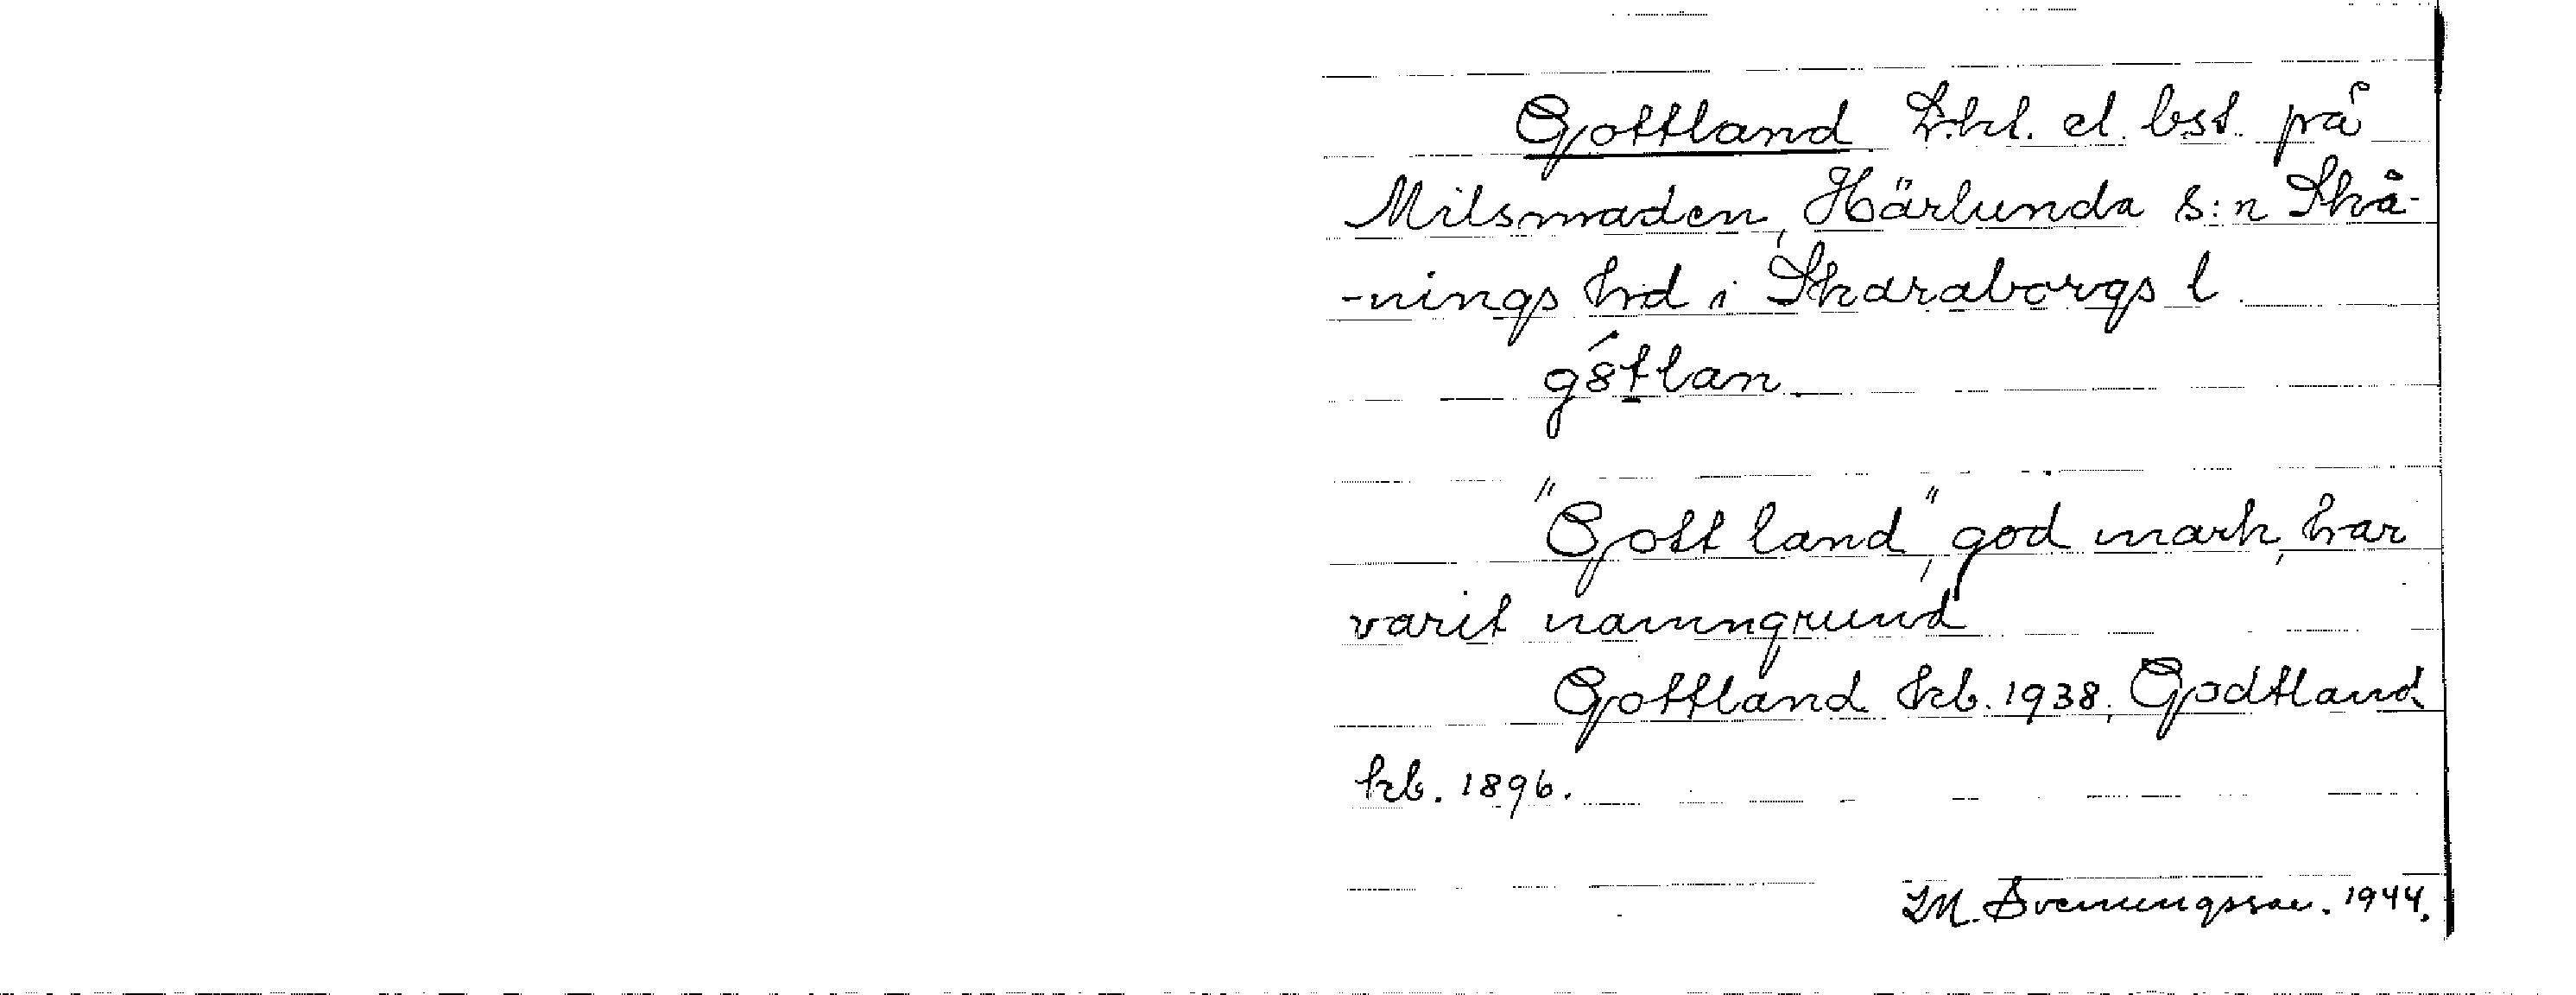 Gottland L.hl. el. bst. på
Milsmaden, Härlunda s:n Skå-
-nings hrd i Skaraborgs l
gȣ́tlan
"Gott land", god mark, har
varit namngrund
Gottland kb. 1938, Godtland
kb. 1896.
1944.